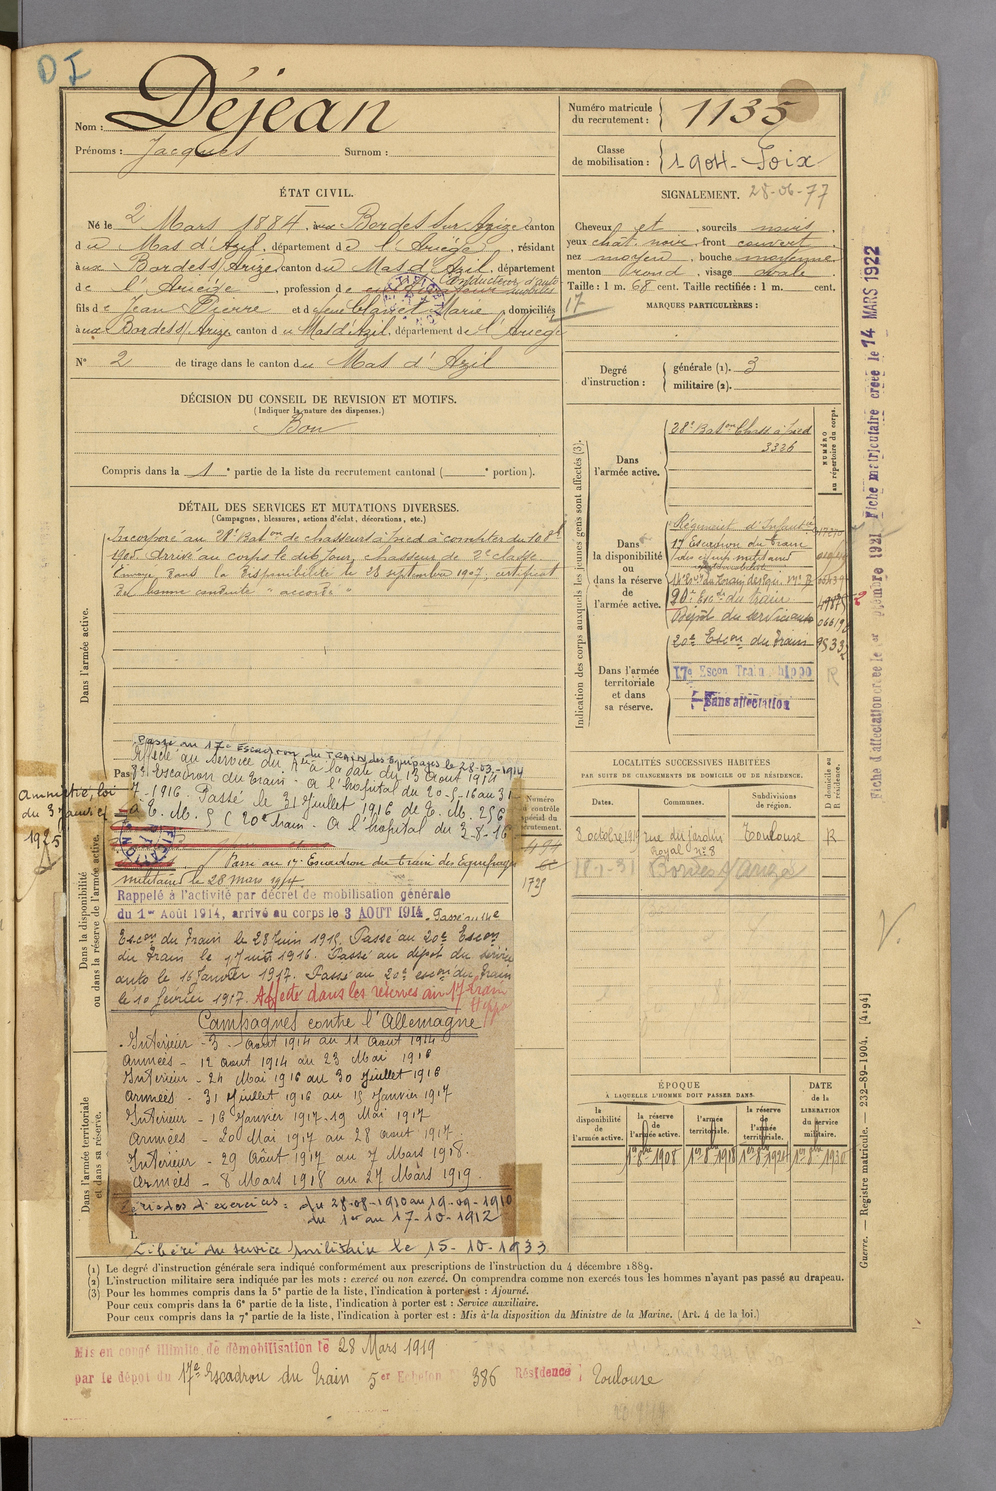 DI
Nom : Déjean
Prénoms : Jacques Surnom :
ÉTAT CIVIL.
Né le 2 Mars 1884, aux Bordes sur Arize canton
du Mas d'Azil, département de l'Ariège, résidant
aux Bordes s/ Arize canton du Mas d'Azil, département
de l'Ariège, profession de Conducteur d'auto
mobiles
fils de Jean Pierre et de Marie, domiciliés
aux Bordes s/ Arize canton du Mas d'Azil, département de l'Ariège
N° 2 de tirage dans le canton du Mas d'Azil
DÉCISION DU CONSEIL DE REVISION ET MOTIFS.
(Indiquer la nature des dispenses.)
Bon
Compris dans la 1e partie de la liste du recrutement cantonal ( e portion).
DÉTAIL DES SERVICES ET MUTATIONS DIVERSES.
(Campagnes, blessures, actions d'éclat, décorations, etc.)
Dans l'armée active.
Incorporé au 28e Baton de chasseurs à pied à compter du 10 8bre
1905 Arrivé au corps le dit jour, chasseur de 2e classe
Envoyé dans la disponibilité le 28 septembre 1907, certificat
de bonne conduite "accordé"
Passé au 17e Escadron du Train des Equipages le 28-03-1914
Affecté au service du à la date du 13 Aout 1914
Escadron du Train - A l'hôpital du 20-5-16 au 31-
7-1916. Passé le 31 Juillet 1916 de E. M. 256
à E. M. 5 (20e train - A l'hôpital du 3-8-16
Amnistié, loi
du 3 Janvier
1925
Passé au 17e Escadron du Train des Equipages
militaires le 28 mars 1914
Rappelé à l'activité par décret de mobilisation générale
du 1er Août 1914, arrivé au corps le 3 AOUT 1914. Passé au 14e
Dans la disponibilité
ou dans la réserve de l'armée active.
Numéro
au contrôle
spécial du
recrutement.
1729
Escon du Train le 28 Juin 1915. Passé au 20e Escon
du Train le 1916. Passé au dépôt du service
auto le 16 Janvier 1917. Passé au 20e escon du Train
le 10 février 1917. Affecté dans les réserves au 17 train
Hippo
Campagnes contre l'Allemagne
- Intérieur - 3 - Aout 1914 au 11 Aout 1914
Armées - 12 Aout 1914 au 23 Mai 1916
Intérieur - 24 Mai 1916 au 30 Juillet 1916
Armées - 31 Juillet 1916 au 15 Janvier 1917
Intérieur - 16 Janvier 1917 - 19 Mai 1917
Armées - 20 Mai 1917 au 28 Aout 1917
Intérieur - 29 Août 1917 au 7 Mars 1918.
Armées - 8 Mars 1918 au 27 Mars 1919
Dans l'armée territoriale
et dans sa réserve.
Périodes d'exercices : du 28-08-1910 au 19-09-1910
du 1er au 17-10-1912
Libéré du service militaire le 15-10-1933
Numéro matricule
du recrutement : 1135
Classe
de mobilisation : 1904 - Foix
SIGNALEMENT. 28-06-77
Cheveux et, sourcils noirs
yeux chat. noir, front couvert
nez moyen, bouche moyenne
menton rond, visage ovale
Taille : 1 m. 68 cent. Taille rectifiée : 1 m. cent.
17
MARQUES PARTICULIÈRES :
Degré
d'instruction :
générale (1). 3
militaire (2).
Indication des corps auxquels les jeunes gens sont affectés (3).
NUMÉRO
au répertoire du corps.
Dans
l'armée active.
28e Baton Chass à pied
3326
Dans
la disponibilité
ou
dans la réserve
de
l'armée active.
Régiment d'Infant
17 Escadron du train
des équip militaires
20e Esc du train
Dépôt du service auto
20e Escon du Train
Dans l'armée
territoriale
et dans
sa réserve.
17e Escon Train hippo
R
Sans affectation
Fiche d'affectation créée le 1er 1921 Fiche matriculaire créée le 14 MARS 1922
LOCALITÉS SUCCESSIVES HABITÉES
PAR SUITE DE CHANGEMENTS DE DOMICILE OU DE RÉSIDENCE.
Dates. Communes. Subdivisions
de région. D domicile ou
R résidence.
2 octobre 1919 rue du jardin Toulouse R
royal n° 8
18-1-31 Bordes s/ Arize
V.
ÉPOQUE
À LAQUELLE L'HOMME DOIT PASSER DANS.
DATE
de la
LIBÉRATION
du service
militaire.
la
disponibilité
de
l'armée active.
la réserve
de
l'armée active.
l'armée
territoriale.
la réserve
de
l'armée
territoriale.
1er 8bre 1908 1er 8bre 1918 1er 8bre 1924 1er 8bre 1930
Guerre. — Registre matricule. — 232-89-1904. [4194]
(1) Le degré d'instruction générale sera indiqué conformément aux prescriptions de l'instruction du 4 décembre 1889.
(2) L'instruction militaire sera indiquée par les mots : exercé ou non exercé. On comprendra comme non exercés tous les hommes n'ayant pas passé au drapeau.
(3) Pour les hommes compris dans la 5e partie de la liste, l'indication à porter est : Ajourné.
Pour ceux compris dans la 6e partie de la liste, l'indication à porter est : Service auxiliaire.
Pour ceux compris dans la 7e partie de la liste, l'indication à porter est : Mis à la disposition du Ministre de la Marine. (Art. 4 de la loi.)
Mis en congé illimité de démobilisation le 28 Mars 1919
par le dépôt du 17e Escadron du Train 5er Echelon 386 Résidence Toulouse